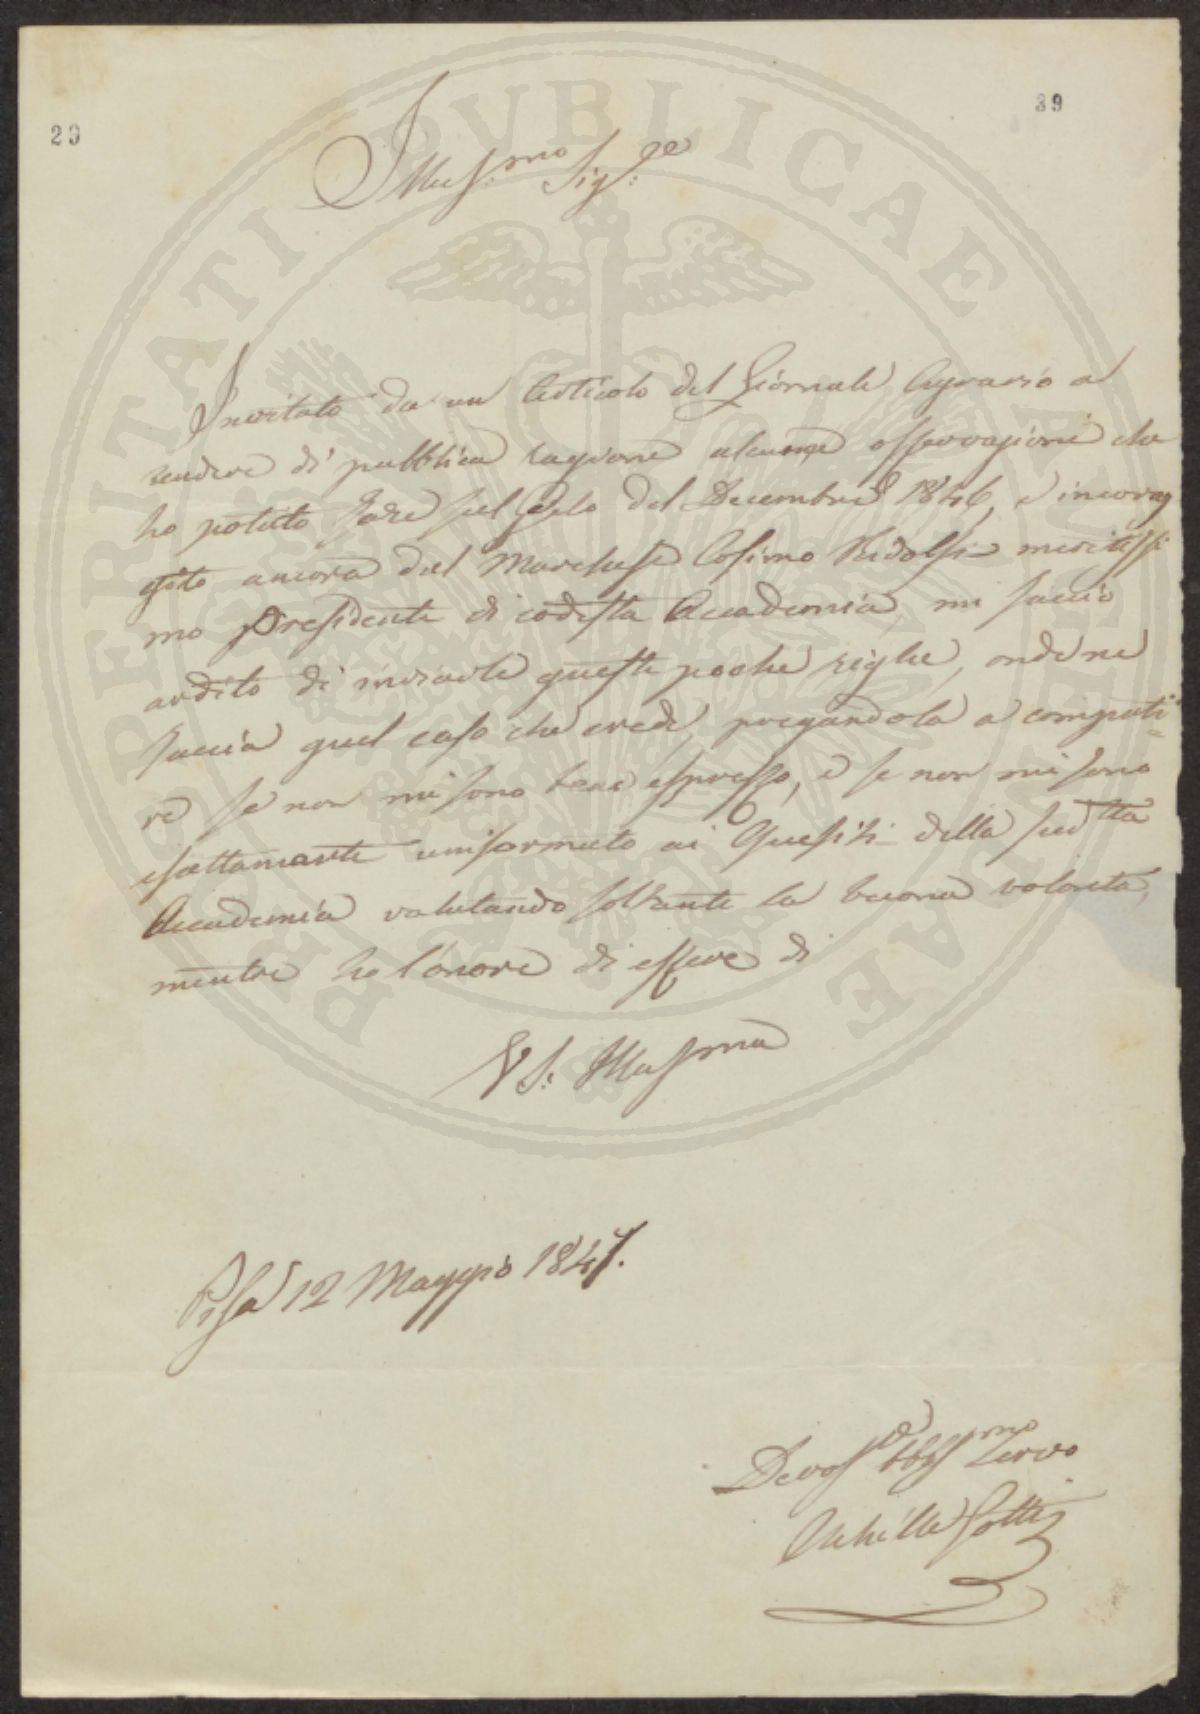 29
39
Illus.mo Sig.re
Invitato da un Articolo del Giornale Agrario a
rendere di pubblica ragione alcune osservazioni che
ho potuto fare sul Gelo del Decembre 1846, e incorag
gito ancora dal Marchese Cosimo Ridolfi meritissi
mo Presidente di codesta Accademia, mi faccio
ardito di inviarle queste poche righe, onde ne
faccia quel caso che crede, pregandola a compati=
re se non mi sono bene espresso, e se non mi sono
esattamente uniformato ai Quesiti della sud.tta
Accademia valutando soltanto la buona volontà,
mentre ho l'onore di essere di
VS. Illus.ma
Pisa 12 Maggio 1847.
Devos. Obb.mo Servo
Achille
PROSPERITATI PUBLICAE AUGENDAE